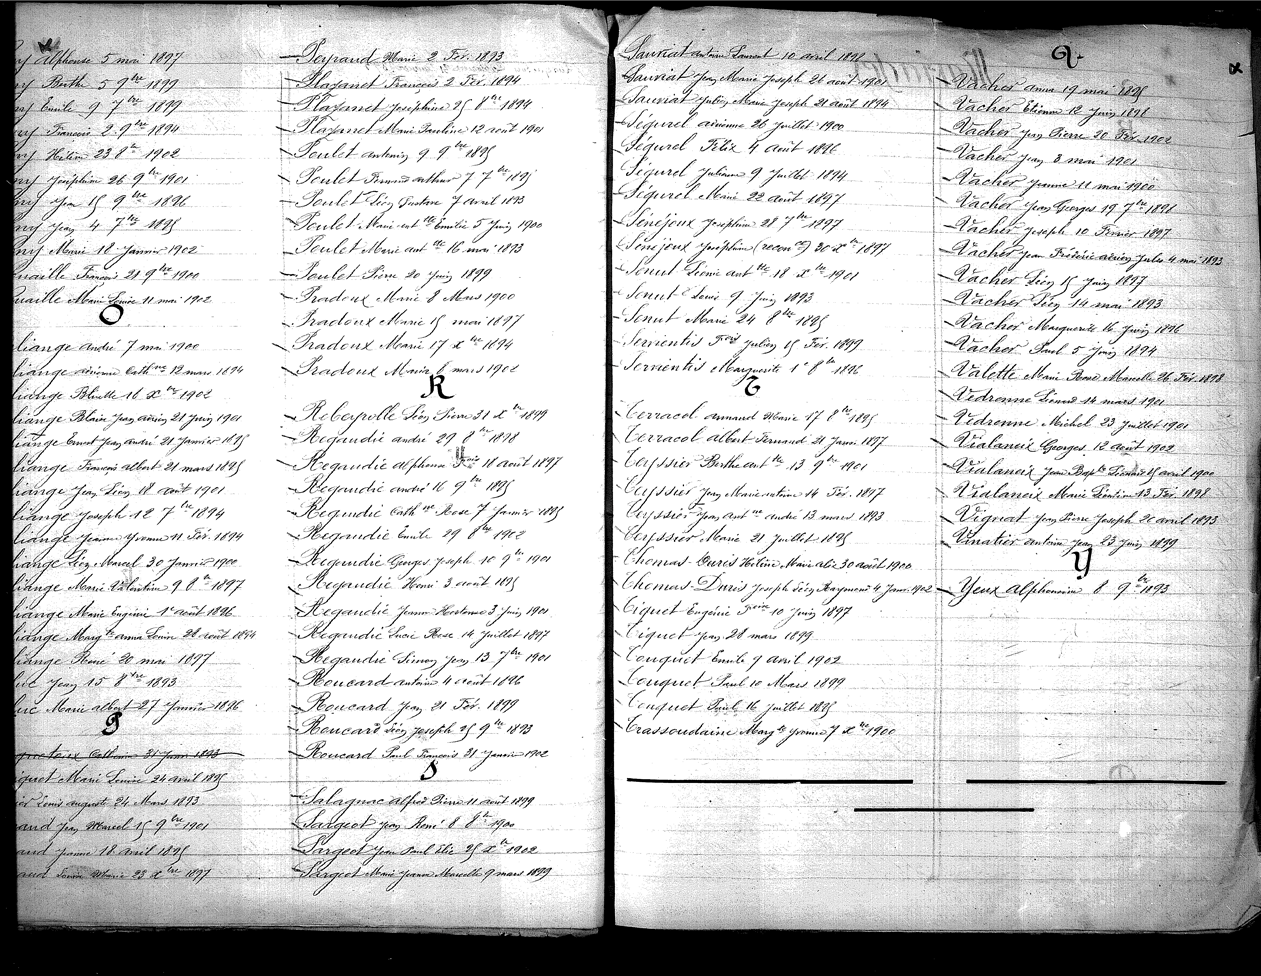 ny Alphonse 5 mai 1897
ny Berthe 5 9bre 1899
ny Emile 9 7bre 1899
ny François 2 9bre 1894
ny Hélène 23 8bre 1902
ny Joséphine 26 9bre 1901
ny Jean 15 9bre 1896
ny Jean 4 7bre 1895
ny Marie 18 Janvier 1902
uaille François 21 9bre 1900
uaille Marie Louise 11 mai 1902
O
liange André 7 mai 1900
liange Adrienne Cathne 12 mars 1894
liange Blivelle 16 Xbre 1902
liange Blaise Jean Adrien 21 Juin 1901
liange Ernest Jean André 21 Janvier 1895
liange François Albert 21 mars 1895
liange Jean Léon 18 août 1901
liange Joseph 12 7bre 1894
liange Jeanne Yvonne 11 Fév. 1894
liange Léon Marcel 30 Janvier 1900
liange Marie Valentine 9 8bre 1897
liange Marie Eugénie 1er août 1896
liange Margte Anna Louise 28 août 1894
liange René 20 mai 1897
luc Jean 15 8bre 1893
luc Marie Albert 27 Janvier 1896
P
Catherine 21 Janv. 1893
iquet Marie Louise 24 avril 1895
ier Louis Auguste 24 Mars 1893
and Jean Marcel 15 9bre 1901
and Jeanne 18 avril 1895
aud Louise Marie 23 Xbre 1897
Peyraud Marie 2 Fév. 1893
Plazanet François 2 Fév. 1894
Plazanet Joséphine 25 8bre 1894
Plazanet Marie Pauline 12 août 1901
Poulet Antonin 9 9bre 1895
Poulet Fernand Arthur 7 7bre 1895
Poulet Léon Gustave 7 avril 1893
Poulet Marie Antte Emilie 5 Juin 1900
Poulet Marie Antte 16 mai 1893
Poulet Pierre 20 Juin 1899
Pradoux Marie 8 Mars 1900
Pradoux Marie 15 mai 1897
Pradoux Marie 17 Xbre 1894
Pradoux Marie 6 mars 1902
R
Rebeyrolle Léon Pierre 31 Xbre 1899
Regaudie André 29 8bre 1898
Regaudie Alphonse Frois 18 août 1897
Regaudie André 16 9bre 1895
Regaudie Cathne Rose 7 Janvier 1895
Regaudie Emile 29 8bre 1902
Regaudie Georges Joseph 10 9bre 1901
Regaudie Henri 3 août 1895
Regaudie Jeanne Hortense 3 Juin 1901
Regaudie Lucie Rose 14 Juillet 1897
Regaudie Simon Jean 13 7bre 1901
Roucard Antoine 4 août 1896
Roucard Jean 21 Fév. 1899
Roucard Léon Joseph 25 9bre 1893
Roucard Paul François 31 Janvier 1902
S
Salagnac Alfred Pierre 11 août 1899
Sargeot Jean René 8 8bre 1900
Sargeot Jean Paul Elie 25 Xbre 1902
Sargeot Marie Jeanne Marcelle 9 mars 1899
Sauriat Antoine Laurent 10 avril 1898
Sauriat Jean Marie Joseph 26 août 1901
Sauriat Julien Marie Joseph 21 août 1894
Ségurel Adrienne 26 Juillet 1900
Ségurel Félix 4 août 1896
Ségurel Julienne 9 Juillet 1894
Ségurel Marie 22 août 1897
Sénéjoux Joséphine 28 7bre 1897
Sénéjoux Joséphine (recon) 30 Xbre 1897
Sonut Léonie Antte 18 Xbre 1901
Sonut Louis 9 Juin 1893
Sonut Marie 24 8bre 1895
Servientis Fred Julien 15 Fév. 1899
Servientis Marguerite 1er 8bre 1896
T
Terracol Armand Marie 17 8bre 1895
Terracol Albert Fernand 21 Janv. 1897
Teyssier Berthe Antte 13 9bre 1901
Teyssier Jean Marie Antoine 14 Fév. 1897
Teyssier Jean Antne André 13 mars 1893
Teyssier Marie 21 Juillet 1895
Thomas-Duris Hélène Marie Alix 30 août 1900
Thomas-Duris Joseph Léon Raymond 4 Janv. 1902
Tiquet Eugénie Foise 10 Juin 1897
Tiquet Jean 28 mars 1899
Touquet Emile 7 avril 1902
Touquet Paul 10 Mars 1899
Touquet Paul 16 Juillet 1895
Trassoudaine Margte Yvonne 7 Xbre 1900
V
Vacher Anna 19 mai 1895
Vacher Etienne 12 Juin 1898
Vacher Jean Pierre 20 Fév. 1902
Vacher Jean 3 mai 1901
Vacher Jeanne 11 mai 1900
Vacher Jean Georges 19 7bre 1891
Vacher Joseph 10 Février 1897
Vacher Jean Frédéric Adrien Jules 4 mai 1893
Vacher Léon 15 Juin 1897
Vacher Léon 14 mai 1893
Vacher Marguerite 16 Juin 1896
Vacher Paul 5 Juin 1894
Valette Marie Rose Marcelle 26 Fév. 1898
Vedrenne Léonard 14 mars 1901
Vedrenne Michel 23 Juillet 1901
Vialaneix Georges 12 août 1902
Vialaneix Jean Bapte Léonard 25 avril 1900
Vialaneix Marie Léontine 13 Fév. 1898
Vignat Jean Pierre Joseph 20 avril 1893
Vinatier Antoine Jean 23 Juin 1899
Y
Yeux Alphonsine 8 9bre 1893